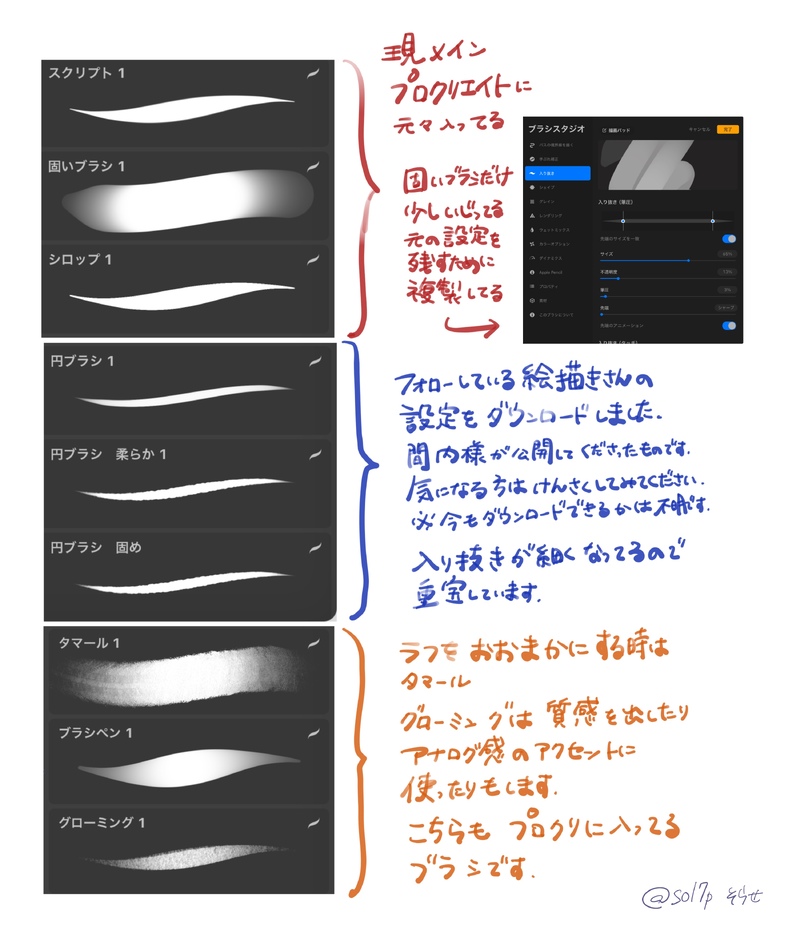 スクリプト 1
固いブラシ 1
シロップ 1
現メイン
プロクリエイトに
元々入ってる
固いブラシだけ
少しいじってる
元の設定を
残すために
複製してる
ブラシスタジオ
描画パッド
キャンセル
完了
入り抜き
シェイプ
グレイン
レンダリング
ウェットミックス
カラーオプション
ダイナミクス
Apple Pencil
プロパティ
素材
このブラシについて
入り抜き（筆圧）
先端のサイズを一致
サイズ
不透明度
筆圧
先端
シャープ
先端のアニメーション
円ブラシ 1
円ブラシ 柔らか 1
円ブラシ 固め
フォローしている絵描きさんの
設定をダウンロードしました.
間内様が公開してくださったものです.
気になる方はけんさくしてみてください.
※今もダウンロードできるかは不明です.
入り抜きが細くなってるので
重宝しています.
タマール 1
ブラシペン 1
グローミング 1
ラフをおおまかにする時は
タマール
グローミングは質感を出したり
アナログ感のアクセントに
使ったりもします.
こちらもプロクリに入ってる
ブラシです.
@sol7p そらせ